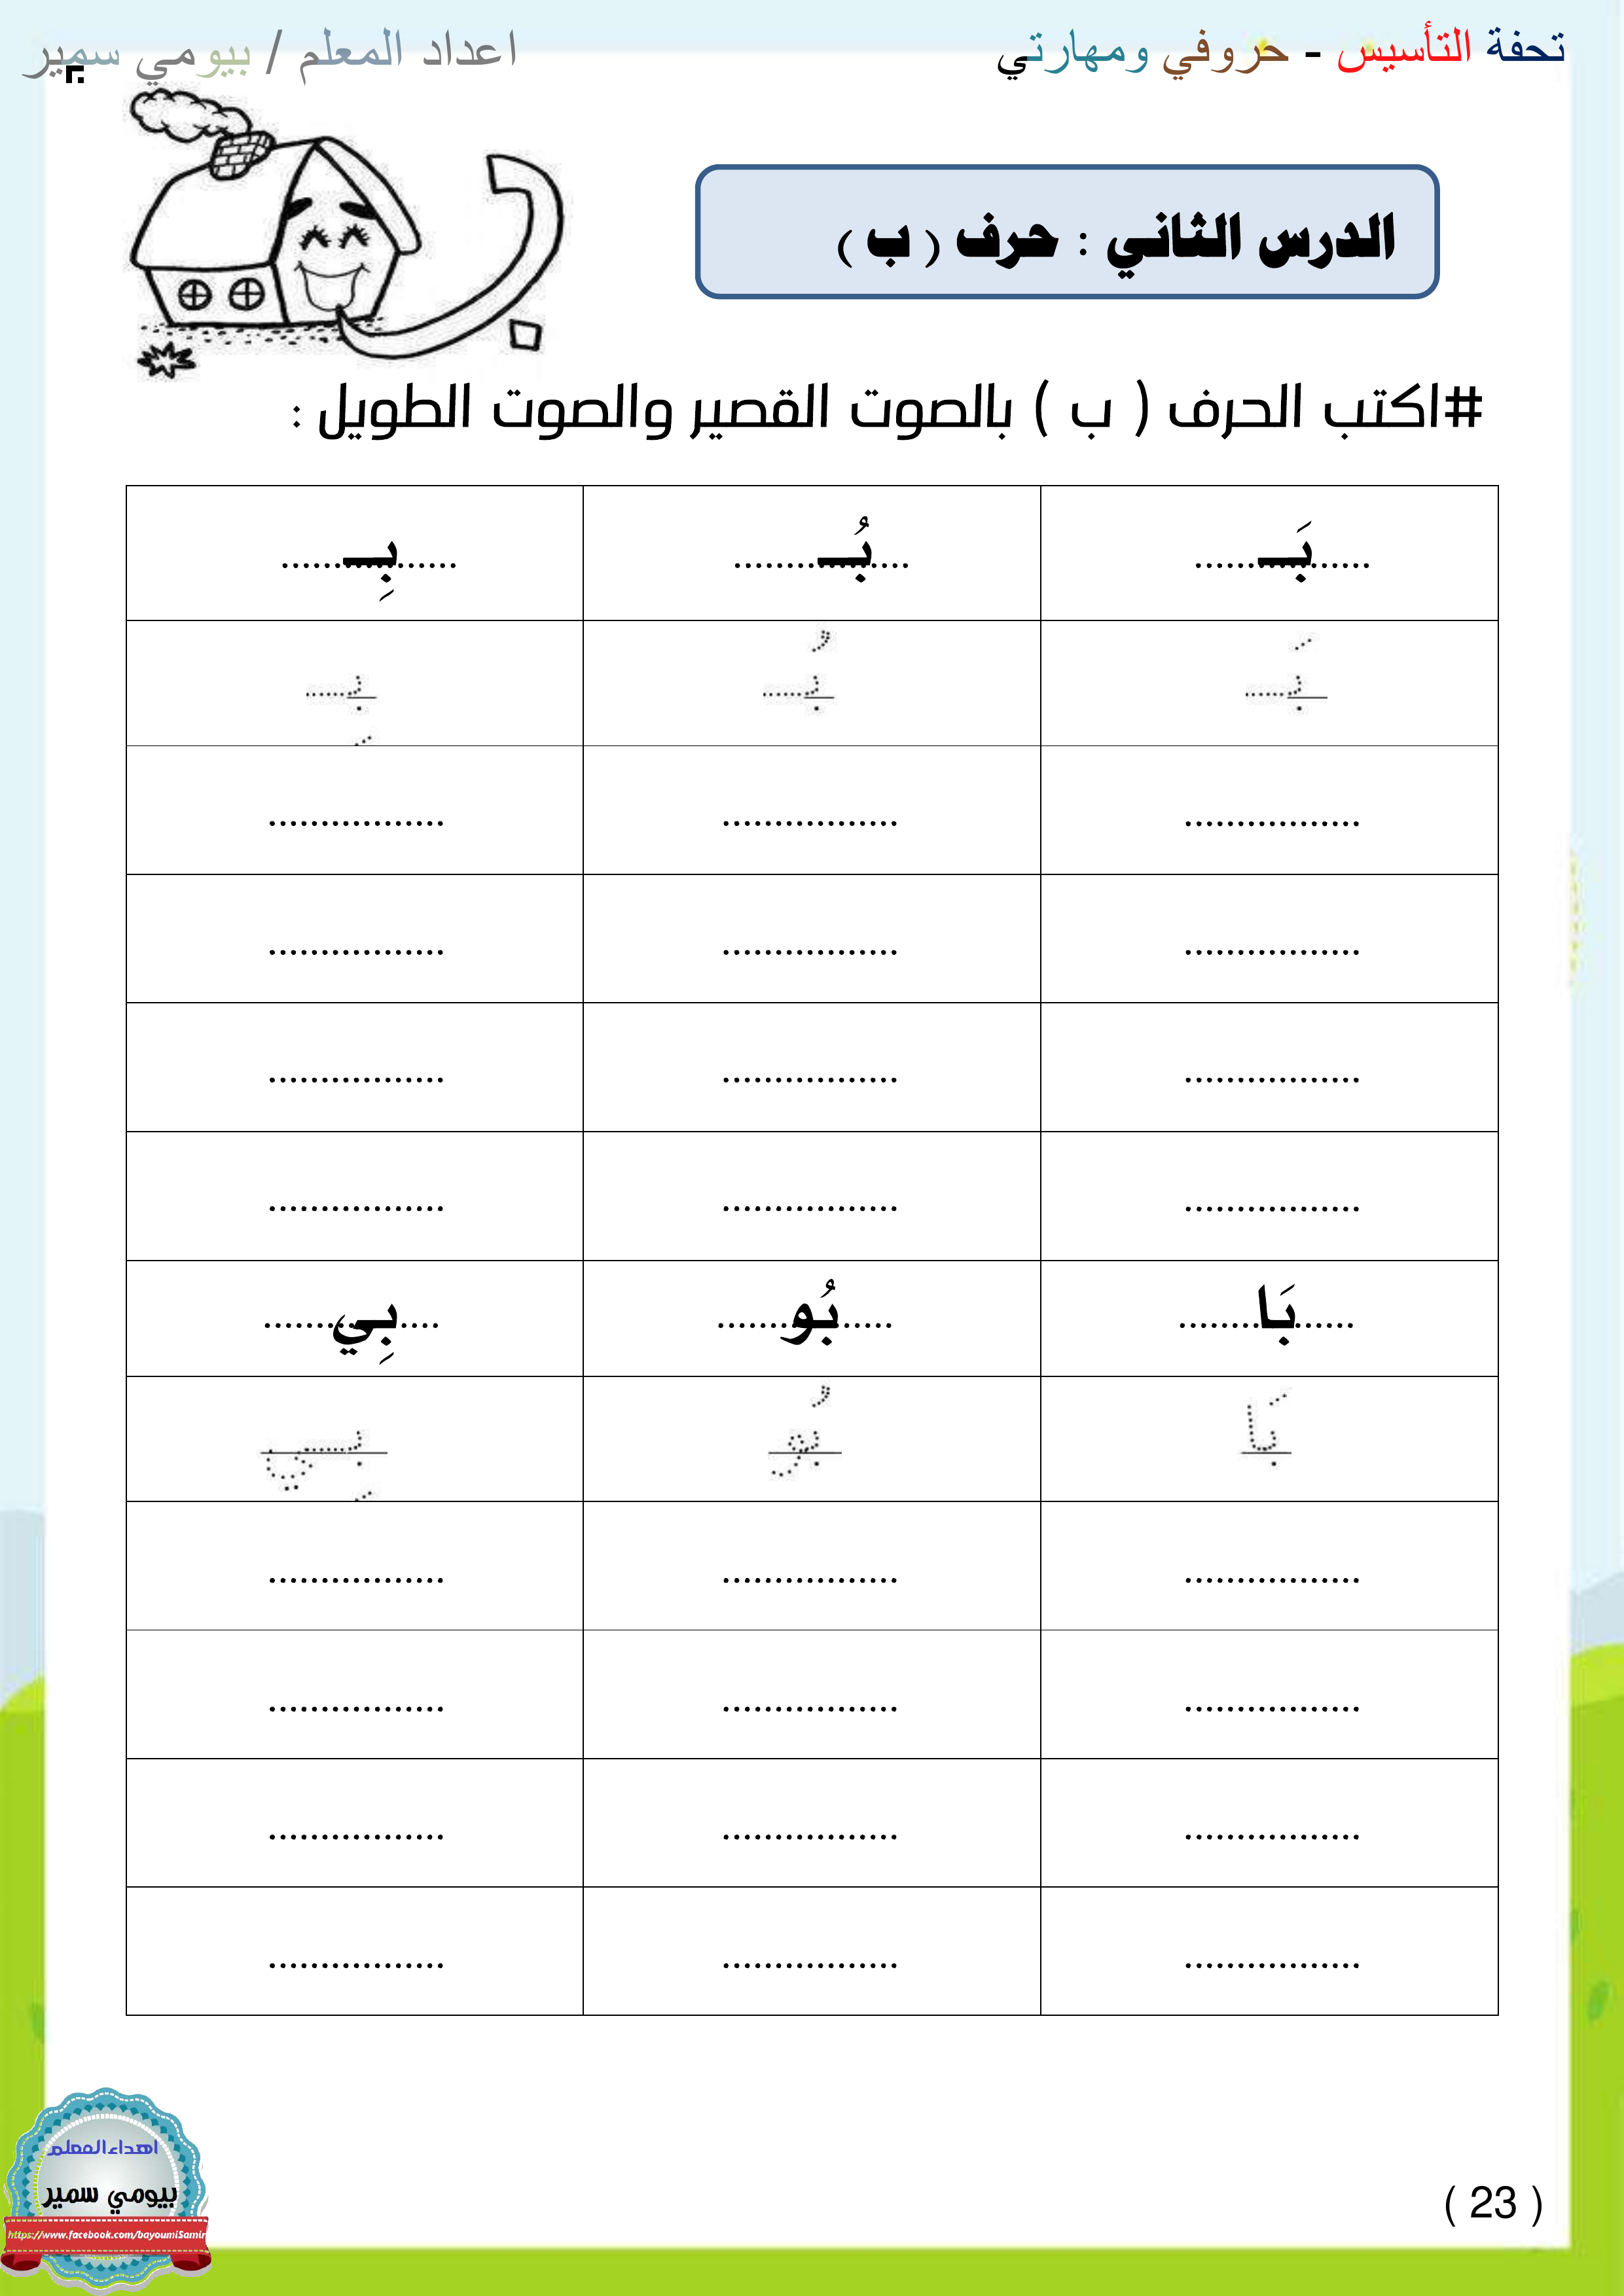 تحفة التأسيس - حروفي ومهارتي
اعداد المعلم / بيومي سمير
الدرس الثاني : حرف ( ب )
#اكتب الحرف ( ب ) بالصوت القصير والصوت الطويل :
بَـ................. بُـ................. بِـ.................
بَـ بُـ بِـ
................. ................. .................
................. ................. .................
................. ................. .................
................. ................. .................
بَا................. بُو................. بِي.................
بَا بُو بِي
................. ................. .................
................. ................. .................
................. ................. .................
................. ................. .................
اهداء المعلم
بيومي سمير
https://www.facebook.com/bayoumiSamir
( 23 )